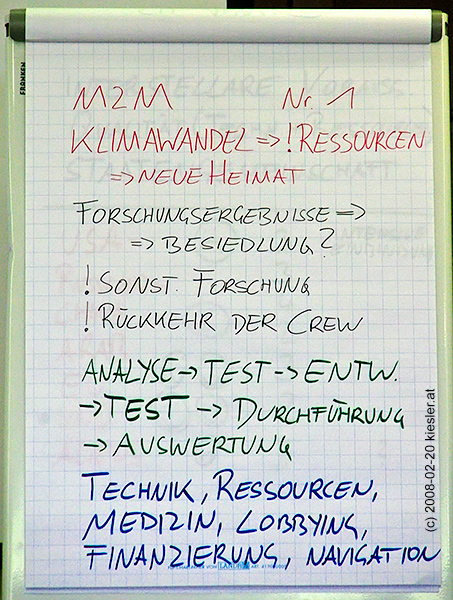 FRANKEN
M2M Nr. 1
KLIMAWANDEL => ! RESSOURCEN
=> NEUE HEIMAT
FORSCHUNGSERGEBNISSE =>
=> BESIEDLUNG?
! SONST. FORSCHUNG
! RÜCKKEHR DER CREW
ANALYSE -> TEST -> ENTW.
-> TEST -> DURCHFÜHRUNG
-> AUSWERTUNG
TECHNIK, RESSOURCEN,
MEDIZIN, LOBBYING,
FINANZIERUNG, NAVIGATION
(c) 2008-02-20 kiesler.at